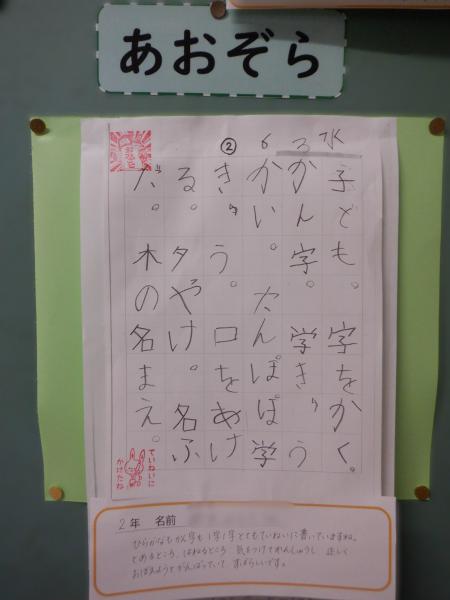 あおぞら
水
6
3
②
子ども。字をかく。
かん字。学きゅう
かい。たんぽぽ学
きゅう。口をあけ
る。夕やけ。名ふ
だ。木の名まえ。
ていねいに
かけたね
2年 名前
ひらがなもかん字も1字1字とてもていねいに書いていますね。
とめるところ、はねるところ 気をつけてれんしゅうし 正しく
おぼえようとがんばっていて すばらしいです。